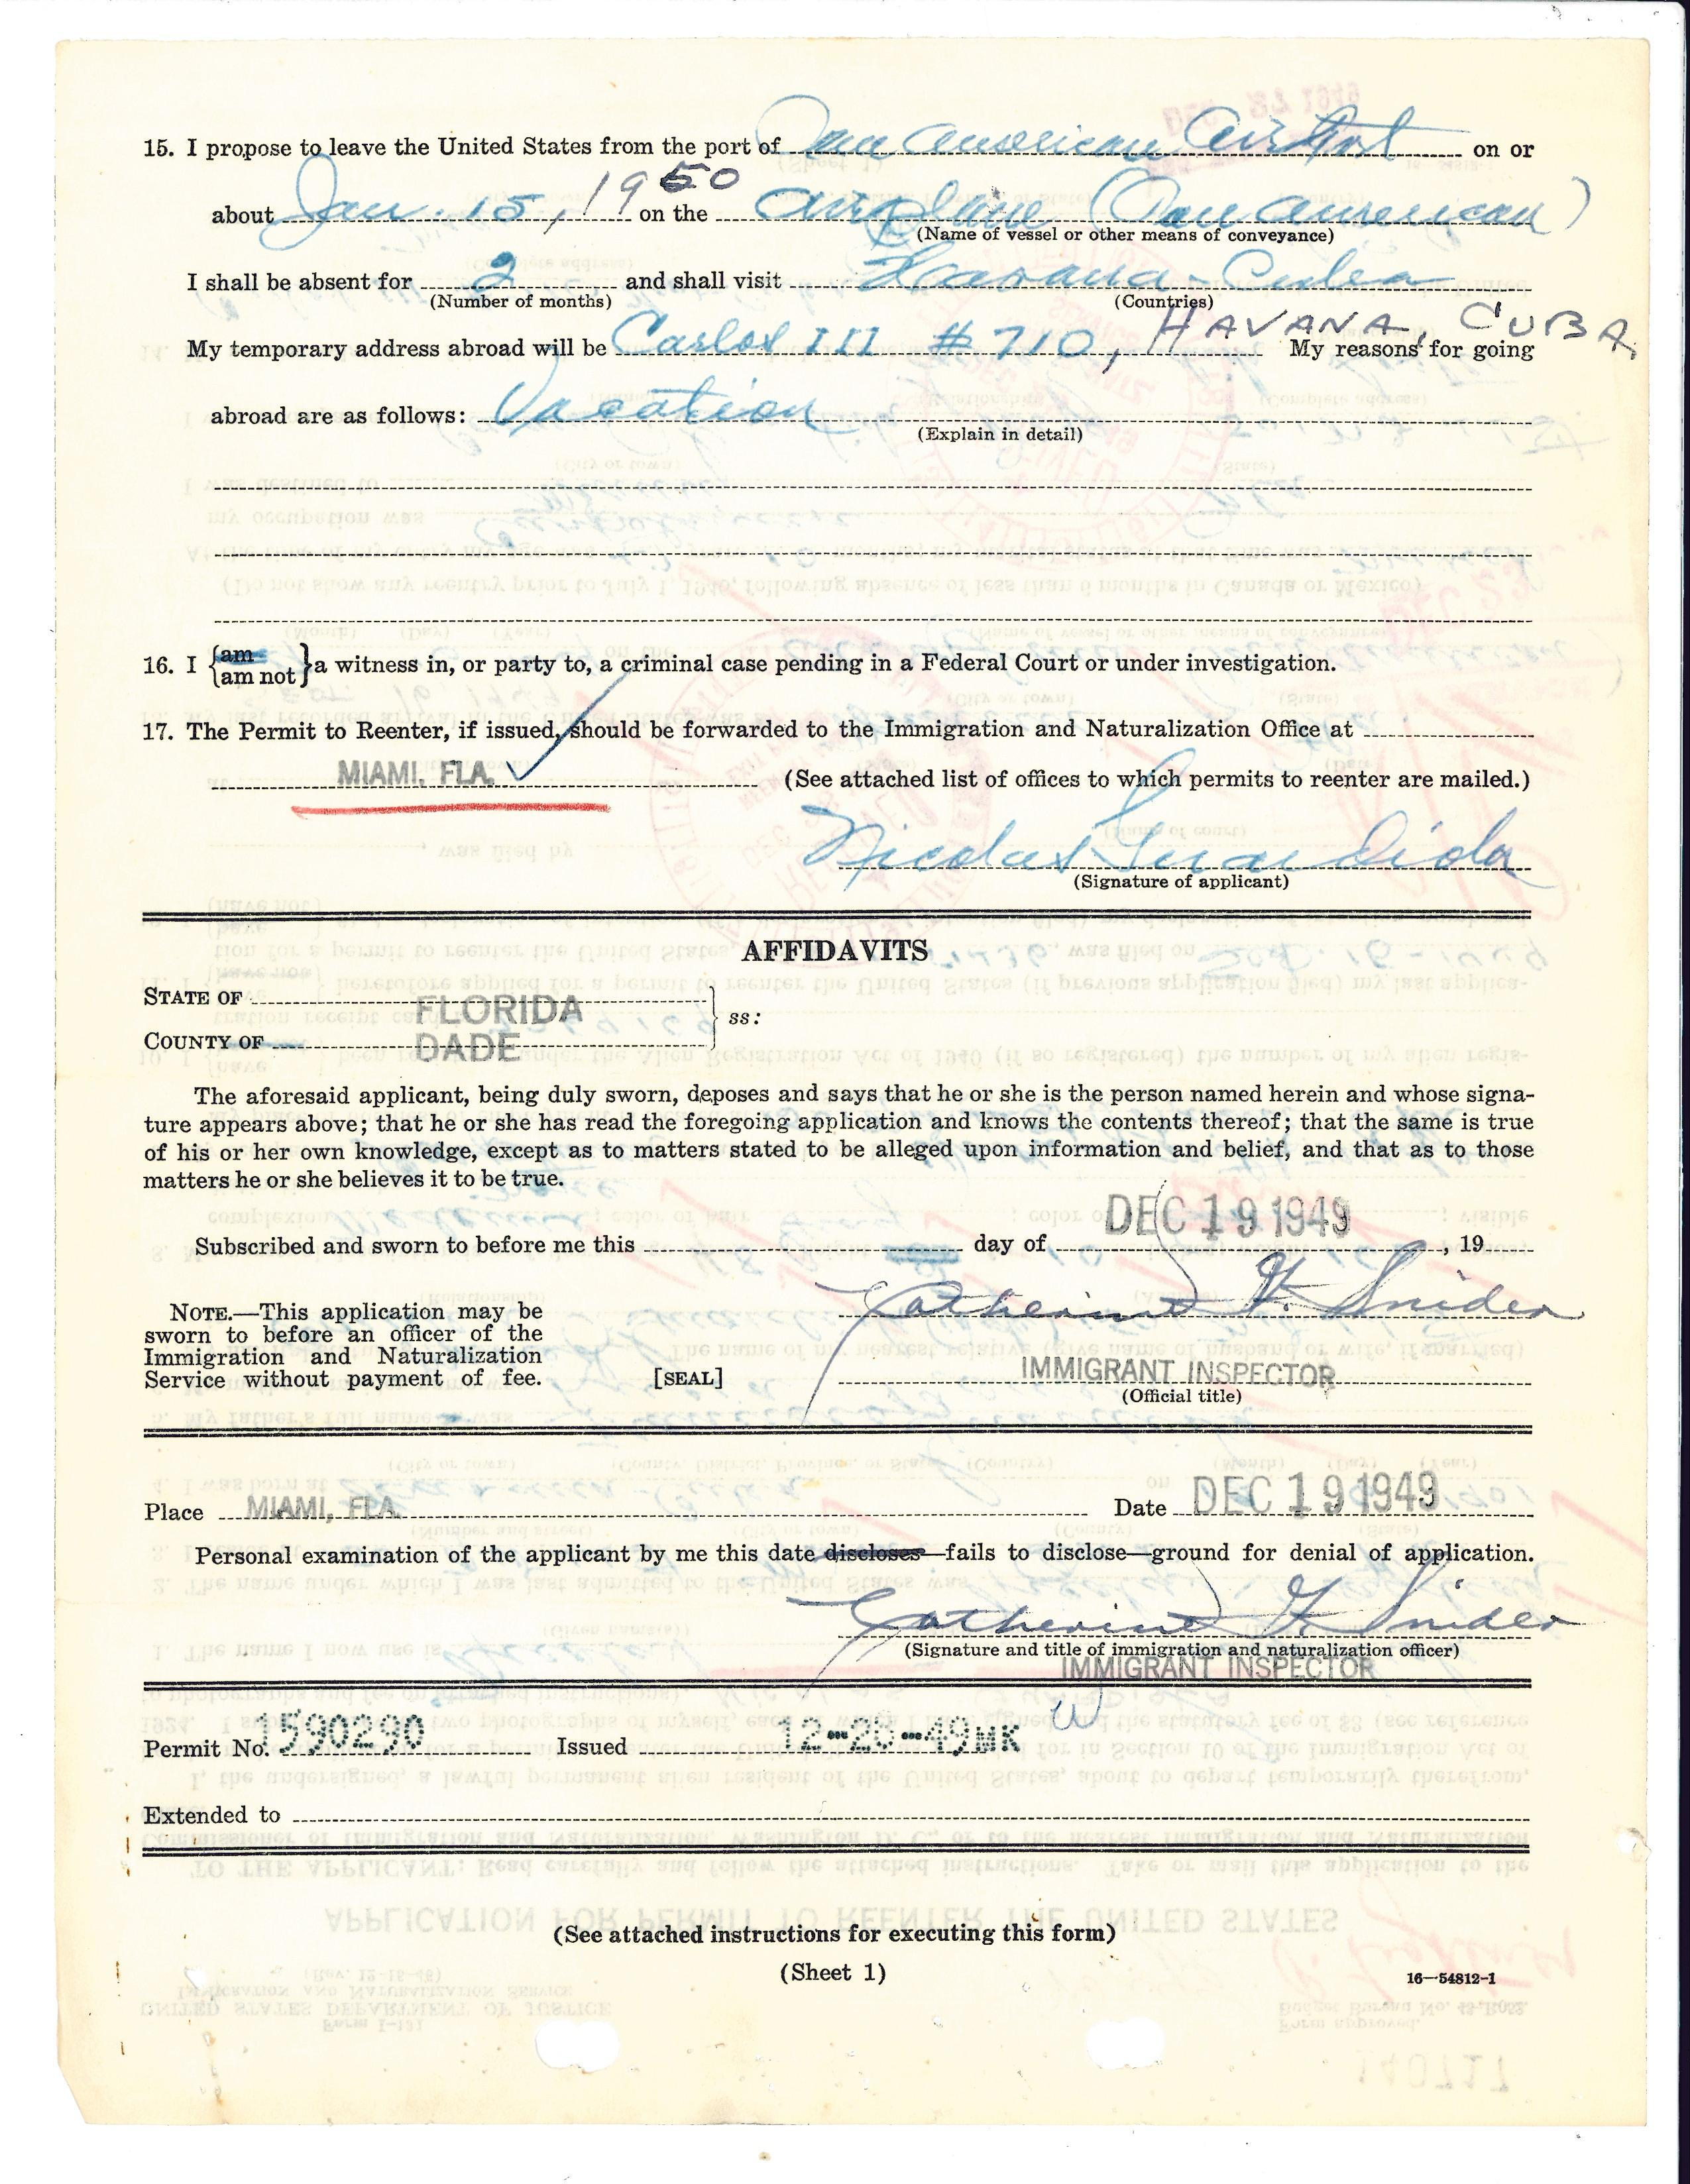 15. I propose to leave the United States from the port of Pan American Airport on or
about Jan. 15, 1950 on the Airplane (Pan American)
(Name of vessel or other means of conveyance)
I shall be absent for 2 and shall visit Havana - Cuba
(Number of months) (Countries)
My temporary address abroad will be Carlos III # 710, HAVANA, CUBA, My reasons for going
abroad are as follows: Vacation
(Explain in detail)
16. I {am am not} a witness in, or party to, a criminal case pending in a Federal Court or under investigation.
17. The Permit to Reenter, if issued, should be forwarded to the Immigration and Naturalization Office at
MIAMI, FLA. (See attached list of offices to which permits to reenter are mailed.)
Nicolas Guardiola
(Signature of applicant)
AFFIDAVITS
STATE OF FLORIDA
ss:
COUNTY OF DADE
The aforesaid applicant, being duly sworn, deposes and says that he or she is the person named herein and whose signa-
ture appears above; that he or she has read the foregoing application and knows the contents thereof; that the same is true
of his or her own knowledge, except as to matters stated to be alleged upon information and belief, and that as to those
matters he or she believes it to be true.
Subscribed and sworn to before me this day of DEC 19 1949, 19
Catherine F. Snider
NOTE.—This application may be
sworn to before an officer of the
Immigration and Naturalization
Service without payment of fee.
[SEAL]
IMMIGRANT INSPECTOR
(Official title)
Place MIAMI, FLA. Date DEC 19 1949
Personal examination of the applicant by me this date discloses—fails to disclose—ground for denial of application.
Catherine F. Snider
(Signature and title of immigration and naturalization officer)
IMMIGRANT INSPECTOR
Permit No. 1590290 Issued 12-28-49 MK
Extended to
(See attached instructions for executing this form)
(Sheet 1)
16—54812-1